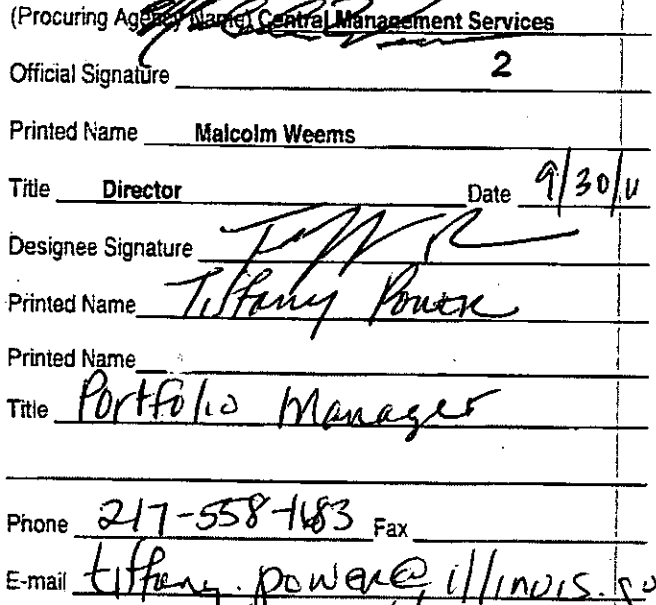 (Procuring Agency Name) Central Management Services
Official Signature 2
Printed Name Malcolm Weems
Title Director Date 9/30/11
Designee Signature
Printed Name Tiffany Power
Printed Name
Title Portfolio Manager
Phone 217-558-1683 Fax
E-mail tiffany.power@illinois.go